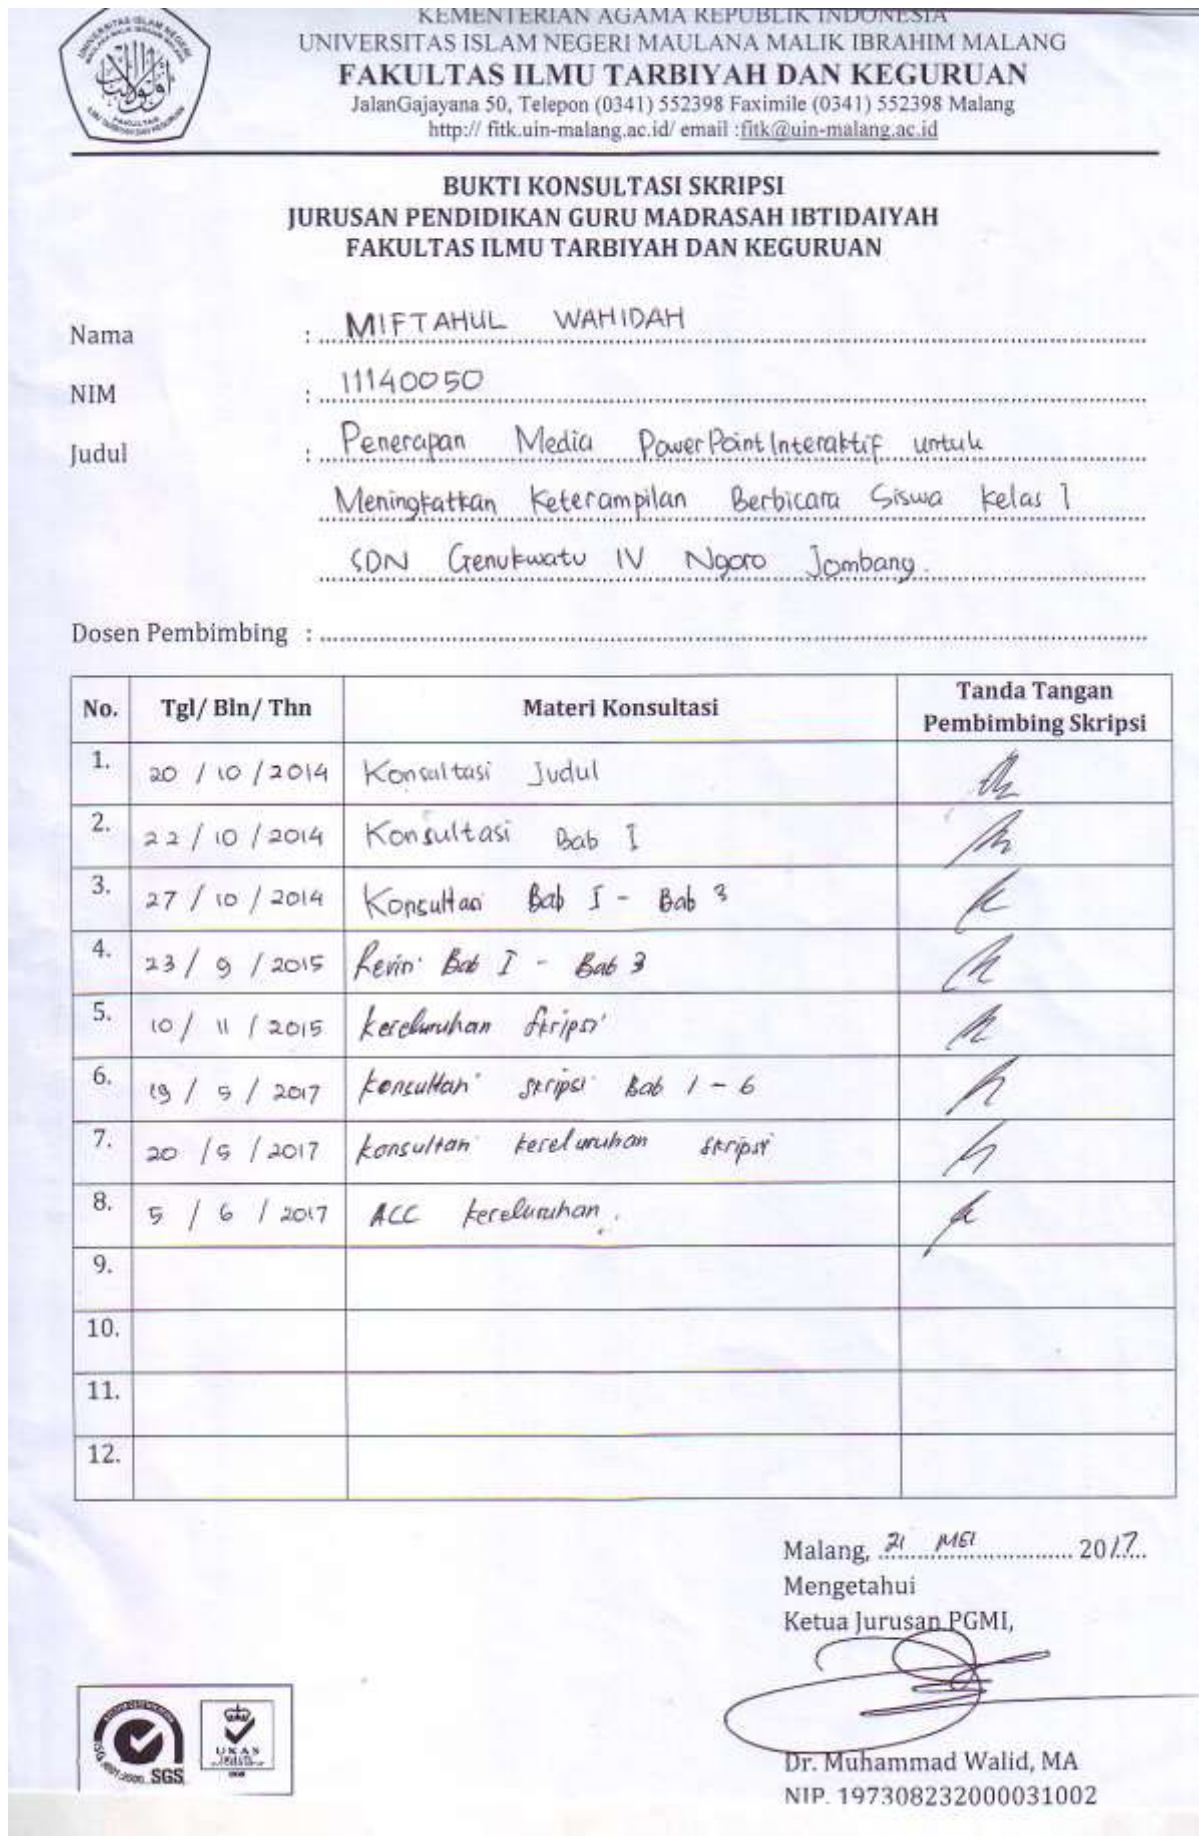 KEMENTERIAN AGAMA REPUBLIK INDONESIA
UNIVERSITAS ISLAM NEGERI MAULANA MALIK IBRAHIM MALANG
FAKULTAS ILMU TARBIYAH DAN KEGURUAN
JalanGajayana 50, Telepon (0341) 552398 Faximile (0341) 552398 Malang
http:// fitk.uin-malang.ac.id/ email :fitk@uin-malang.ac.id
BUKTI KONSULTASI SKRIPSI
JURUSAN PENDIDIKAN GURU MADRASAH IBTIDAIYAH
FAKULTAS ILMU TARBIYAH DAN KEGURUAN
Nama : MIFTAHUL WAHIDAH
NIM : 11140050
Judul : Penerapan Media PowerPoint Interaktif untuk
Meningkatkan Keterampilan Berbicara Siswa kelas I
SDN Genukwatu IV Ngoro Jombang.
Dosen Pembimbing :
No. Tgl/ Bln/ Thn Materi Konsultasi Tanda Tangan Pembimbing Skripsi
1. 20 / 10 / 2014 Konsultasi Judul
2. 22 / 10 / 2014 Konsultasi Bab I
3. 27 / 10 / 2014 Konsultasi Bab I - Bab 3
4. 23 / 9 / 2015 Revisi Bab I - Bab 3
5. 10 / 11 / 2015 keseluruhan skripsi
6. 19 / 5 / 2017 konsultasi skripsi Bab 1 - 6
7. 20 / 5 / 2017 konsultasi keseluruhan skripsi
8. 5 / 6 / 2017 ACC keseluruhan.
9.
10.
11.
12.
Malang, 21 MEI 2017
Mengetahui
Ketua Jurusan PGMI,
Dr. Muhammad Walid, MA
NIP. 197308232000031002
SGS
UKAS